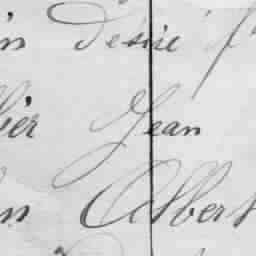 in Désiré
bier Jean
in Albert